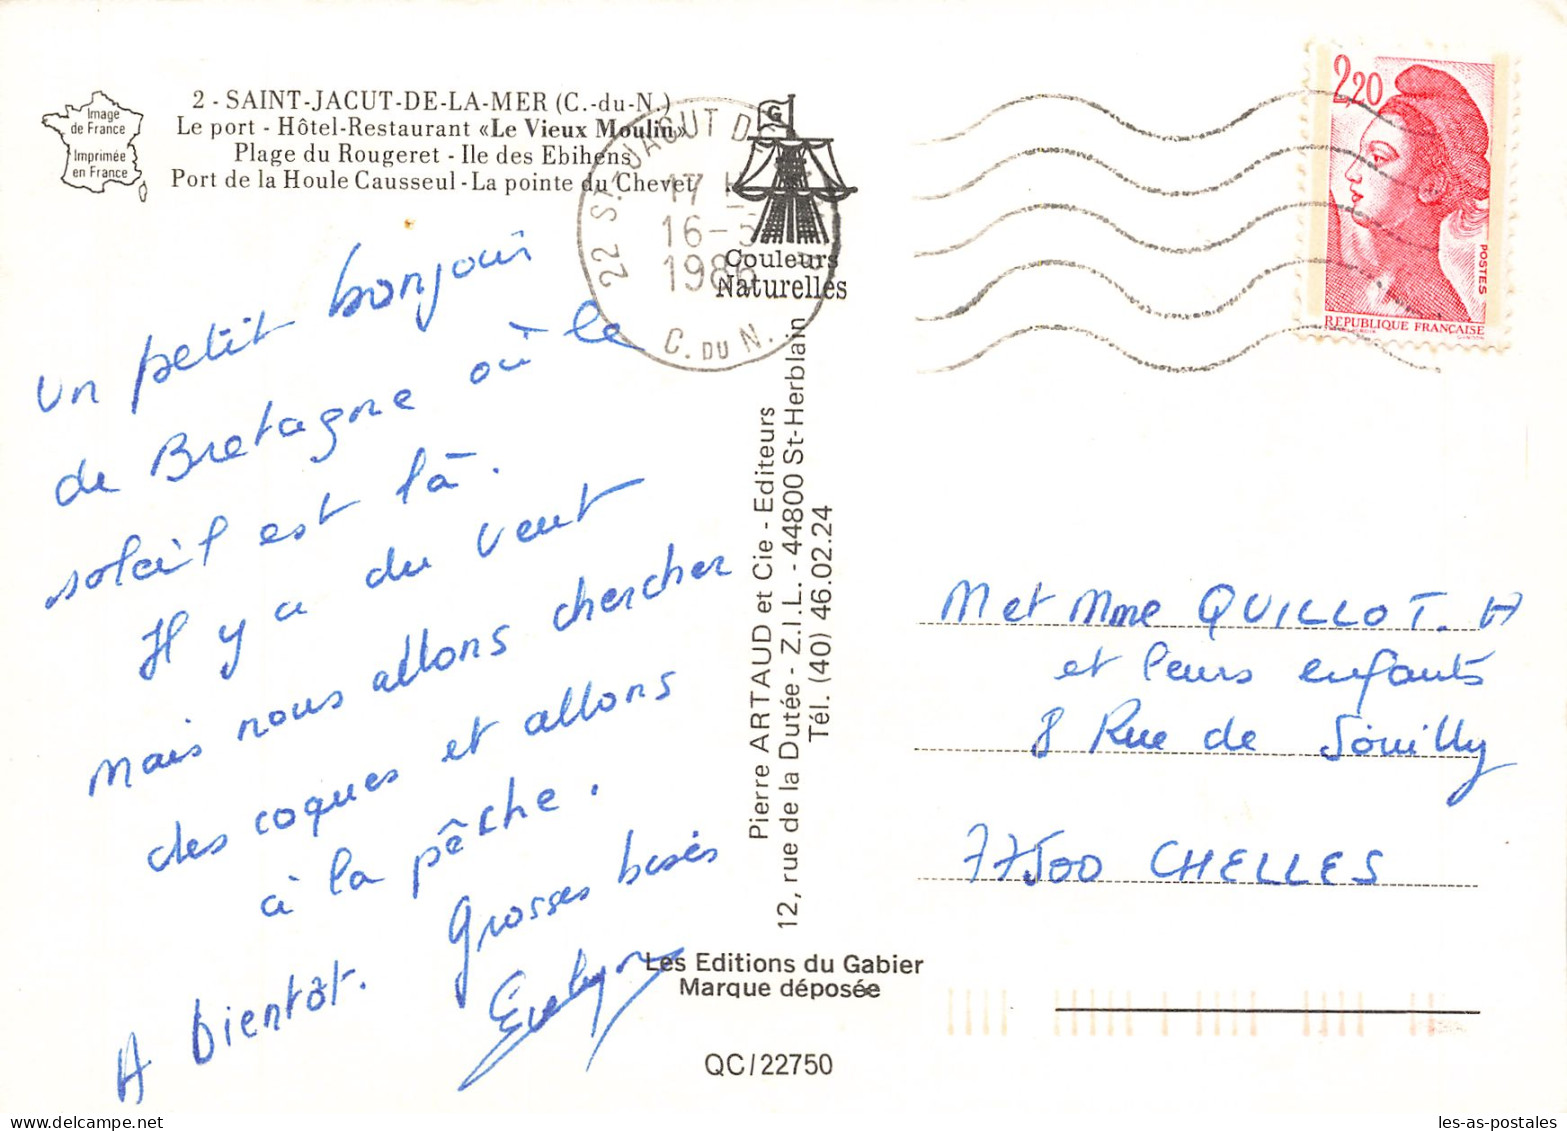 Image
de France
Imprimée
en France
2 - SAINT-JACUT-DE-LA-MER (C.-du-N.)
Le port - Hôtel-Restaurant «Le Vieux Moulin»
Plage du Rougeret - Ile des Ebihens
Port de la Houle Causseul - La pointe du Chevet
22 ST JACUT D
17 H
16-
1986
C. DU N.
G
Couleurs
Naturelles
2,20
POSTES
REPUBLIQUE FRANCAISE
un petit bonjour
de Bretagne où le
soleil est là.
Il y a du vent
mais nous allons chercher
des coques et allons
à la pêche.
Grosses bises
A bientôt.
Pierre ARTAUD et Cie - Editeurs
12, rue de la Dutée - Z.I.L. - 44800 St-Herblain
Tél. (40) 46.02.24
M et Mme QUILLOT. A
et leurs enfants
8 Rue de Souilly
77500 CHELLES
Les Editions du Gabier
Marque déposée
QC/22750
les-as-postales